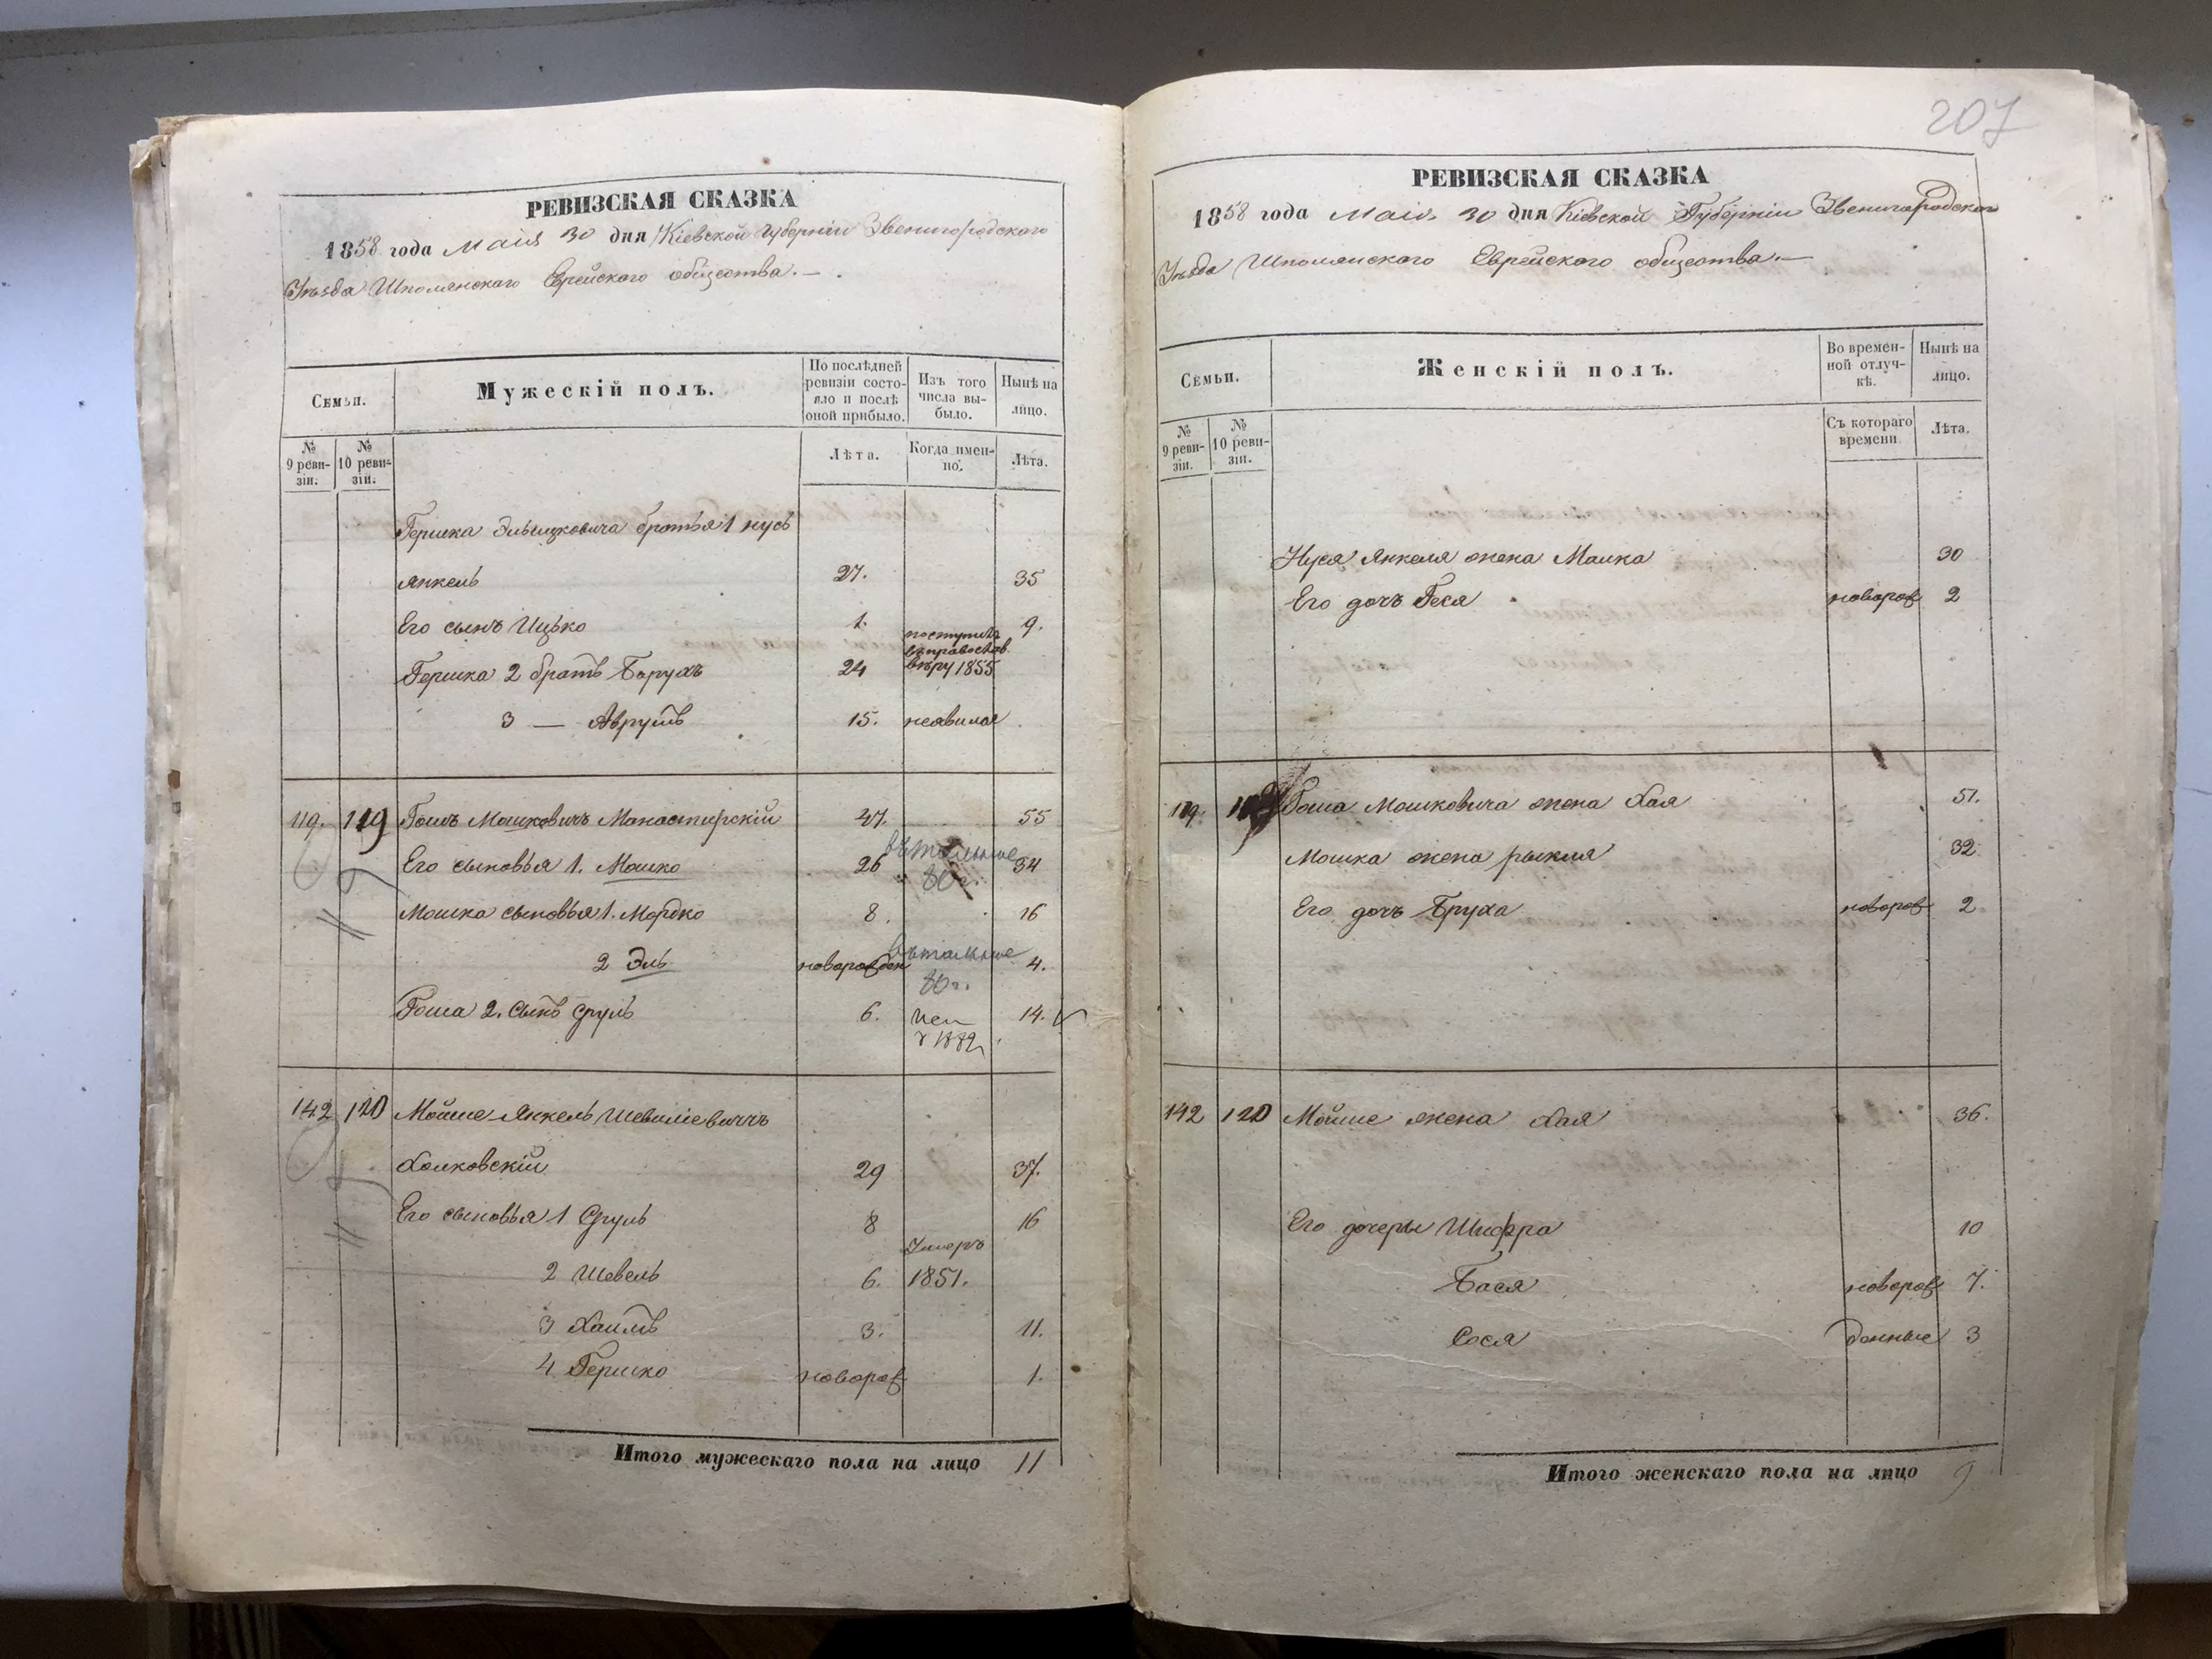 207
РЕВИЗСКАЯ СКАЗКА
1858 года Маія 30 дня Кіевской Губерніи Звенигородскаго
Уѣзда Шполянскаго Еврейскаго общества. —
Семьи.
Мужескій полъ.
По послѣдней ревизіи состояло и послѣ оной прибыло.
Изъ того числа выбыло.
Нынѣ на лицо.
№ 9 ревизіи.
№ 10 ревизіи.
Лѣта.
Когда именно.
Лѣта.
Гершка Эльицковича братья 1 Нусь
Янкель 27. 35
Его сынъ Ицько 1. 9.
Гершка 2 братъ Борухъ 24 поступилъ въ православ. вѣру 1855
3 — Аврумъ 15. неявился
119. 119 Гошъ Мошковичъ Манастирскій 47. 55
Его сыновья 1. Мошко 26 34
Мошка сыновья 1. Мордко 8. 16
2 Эль новорожден 4.
Гоша 2. сынъ Сруль 6. 14.
142 120 Мойше Янкель Шевиліевичъ
Холковскій 29 37.
Его сыновья 1 Сруль 8 16
2 Шевель 6. Умеръ 1851.
3 Хаимъ 3. 11.
4 Гершко новорож 1.
Итого мужескаго пола на лицо 11
РЕВИЗСКАЯ СКАЗКА
1858 года Маія 30 дня Кіевской Губерніи Звенигородскаго
Уѣзда Шполянскаго Еврейскаго общества. —
Семьи.
Женскій полъ.
Во временной отлучкѣ.
Нынѣ на лицо.
№ 9 ревизіи.
№ 10 ревизіи.
Съ котораго времени
Лѣта.
Нуся Янкеля жена Малка 30
Его дочь Геся новорож 2
119. Гоша Мошковича жена Хая 51.
Мошка жена Рыкля 32
Его дочь Бруха новорож 2
142 120 Мойше жена Хая 36.
Его дочеры Шифра 10
Бася новорож 7.
Сося денные 3
Итого женскаго пола на лицо 9